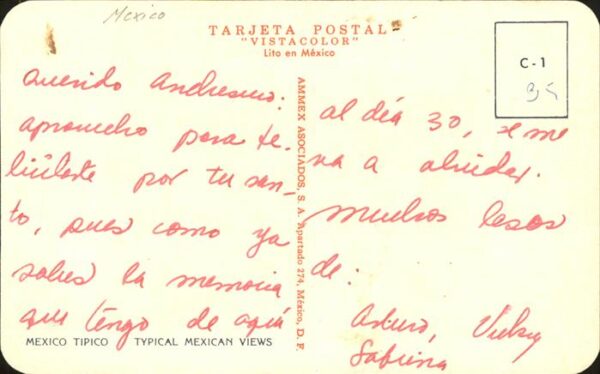 Mexico
TARJETA POSTAL
"VISTACOLOR"
Lito en México
C-1
Querido Andresuco:
aprovecho para fe-
licitarte por tu san-
to, pues como ya
sabes la memoria
que tengo de aquí
al día 30, se me
va a olvidar.
Muchos besos
de:
Arturo, Vicky
Sabrina
AMMEX ASOCIADOS, S. A. Apartado 274, México, D. F.
MEXICO TIPICO TYPICAL MEXICAN VIEWS